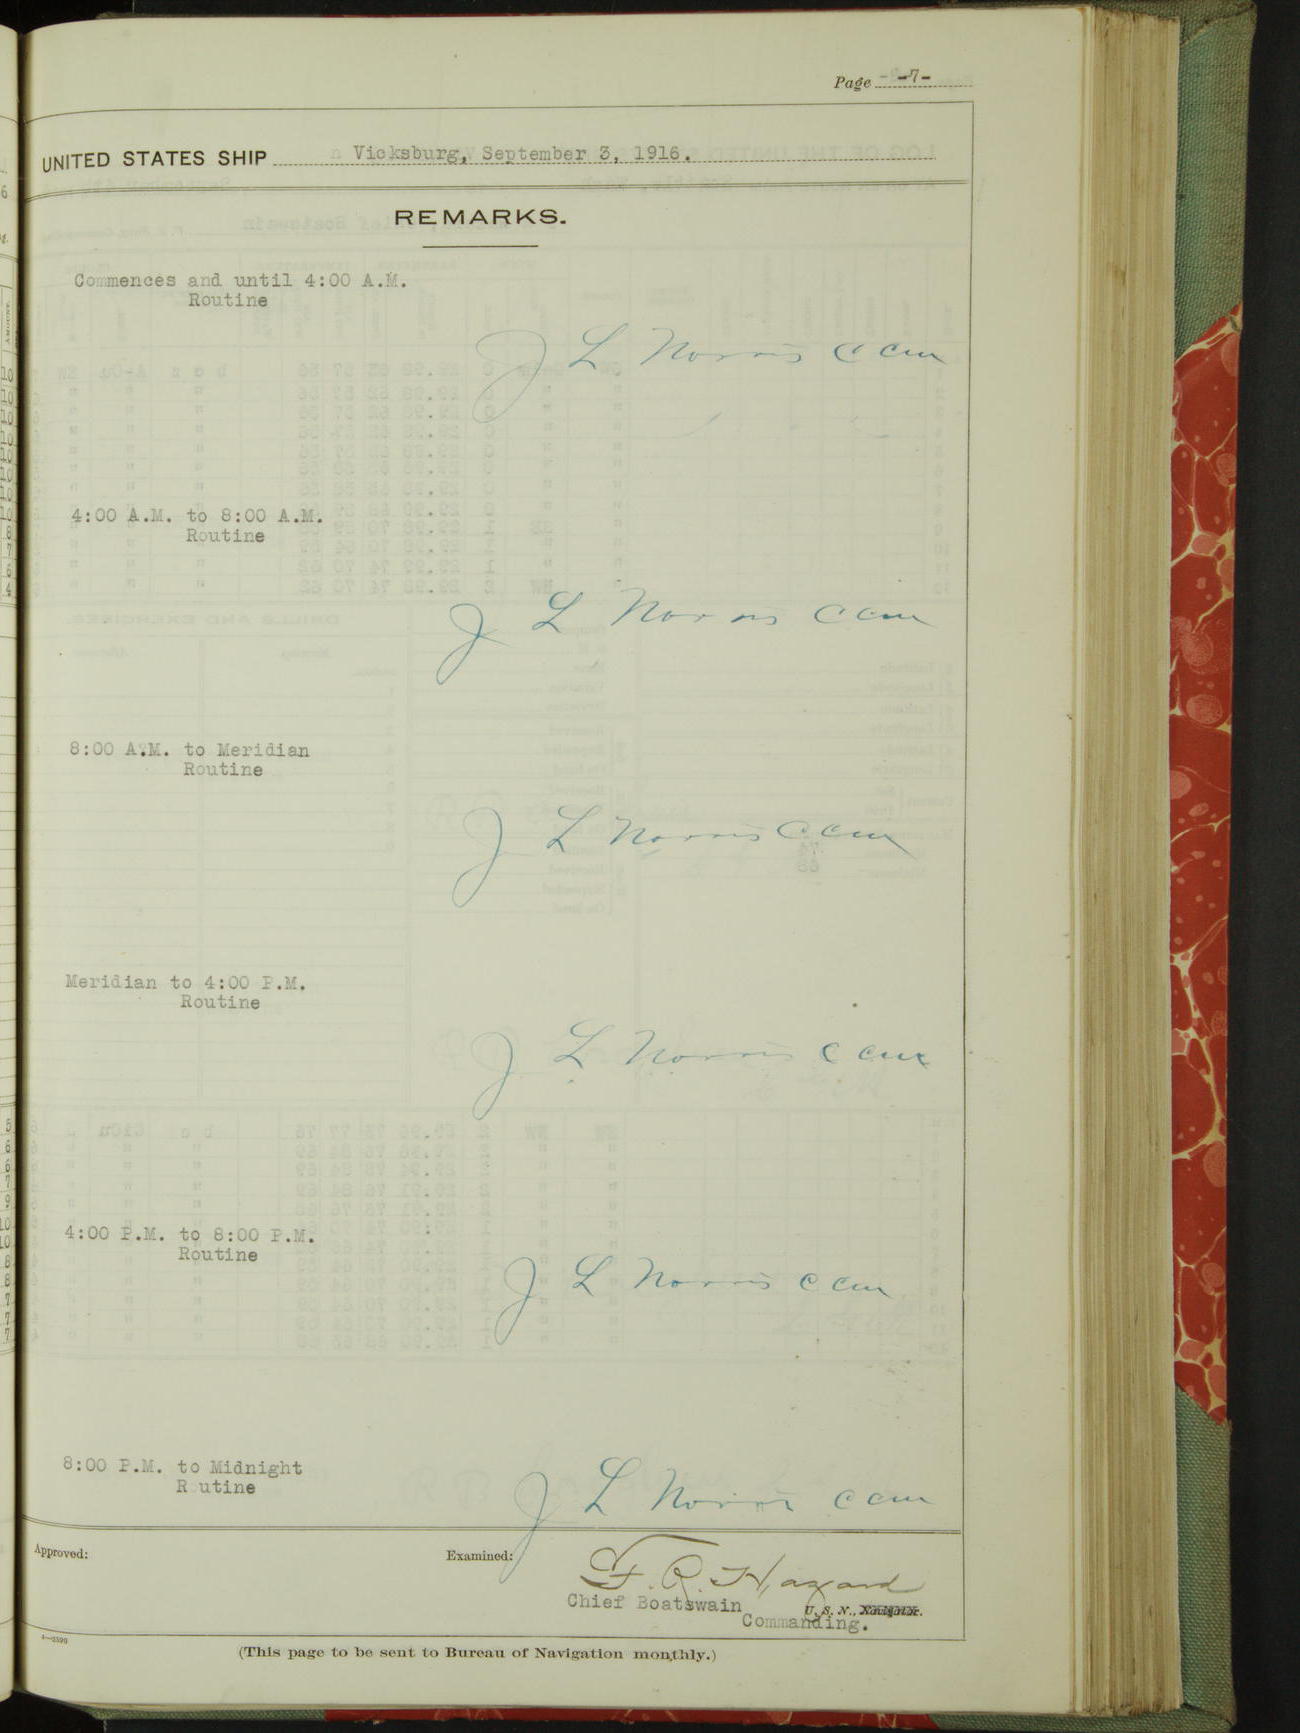 Page -7-
UNITED STATES SHIP Vicksburg, September 3, 1916.
REMARKS.
Commences and until 4:00 A.M.
Routine
J L Norris CCM
4:00 A.M. to 8:00 A.M.
Routine
J L Norris CCM
8:00 A.M. to Meridian
Routine
J L Norris CCM
Meridian to 4:00 P.M.
Routine
J L Norris CCM
4:00 P.M. to 8:00 P.M.
Routine
J L Norris CCM
8:00 P.M. to Midnight
R utine
J L Norris CCM
Approved:
Examined:
F. R. Hazard
Chief Boatswain U. S. N.,
Commanding.
(This page to be sent to Bureau of Navigation monthly.)